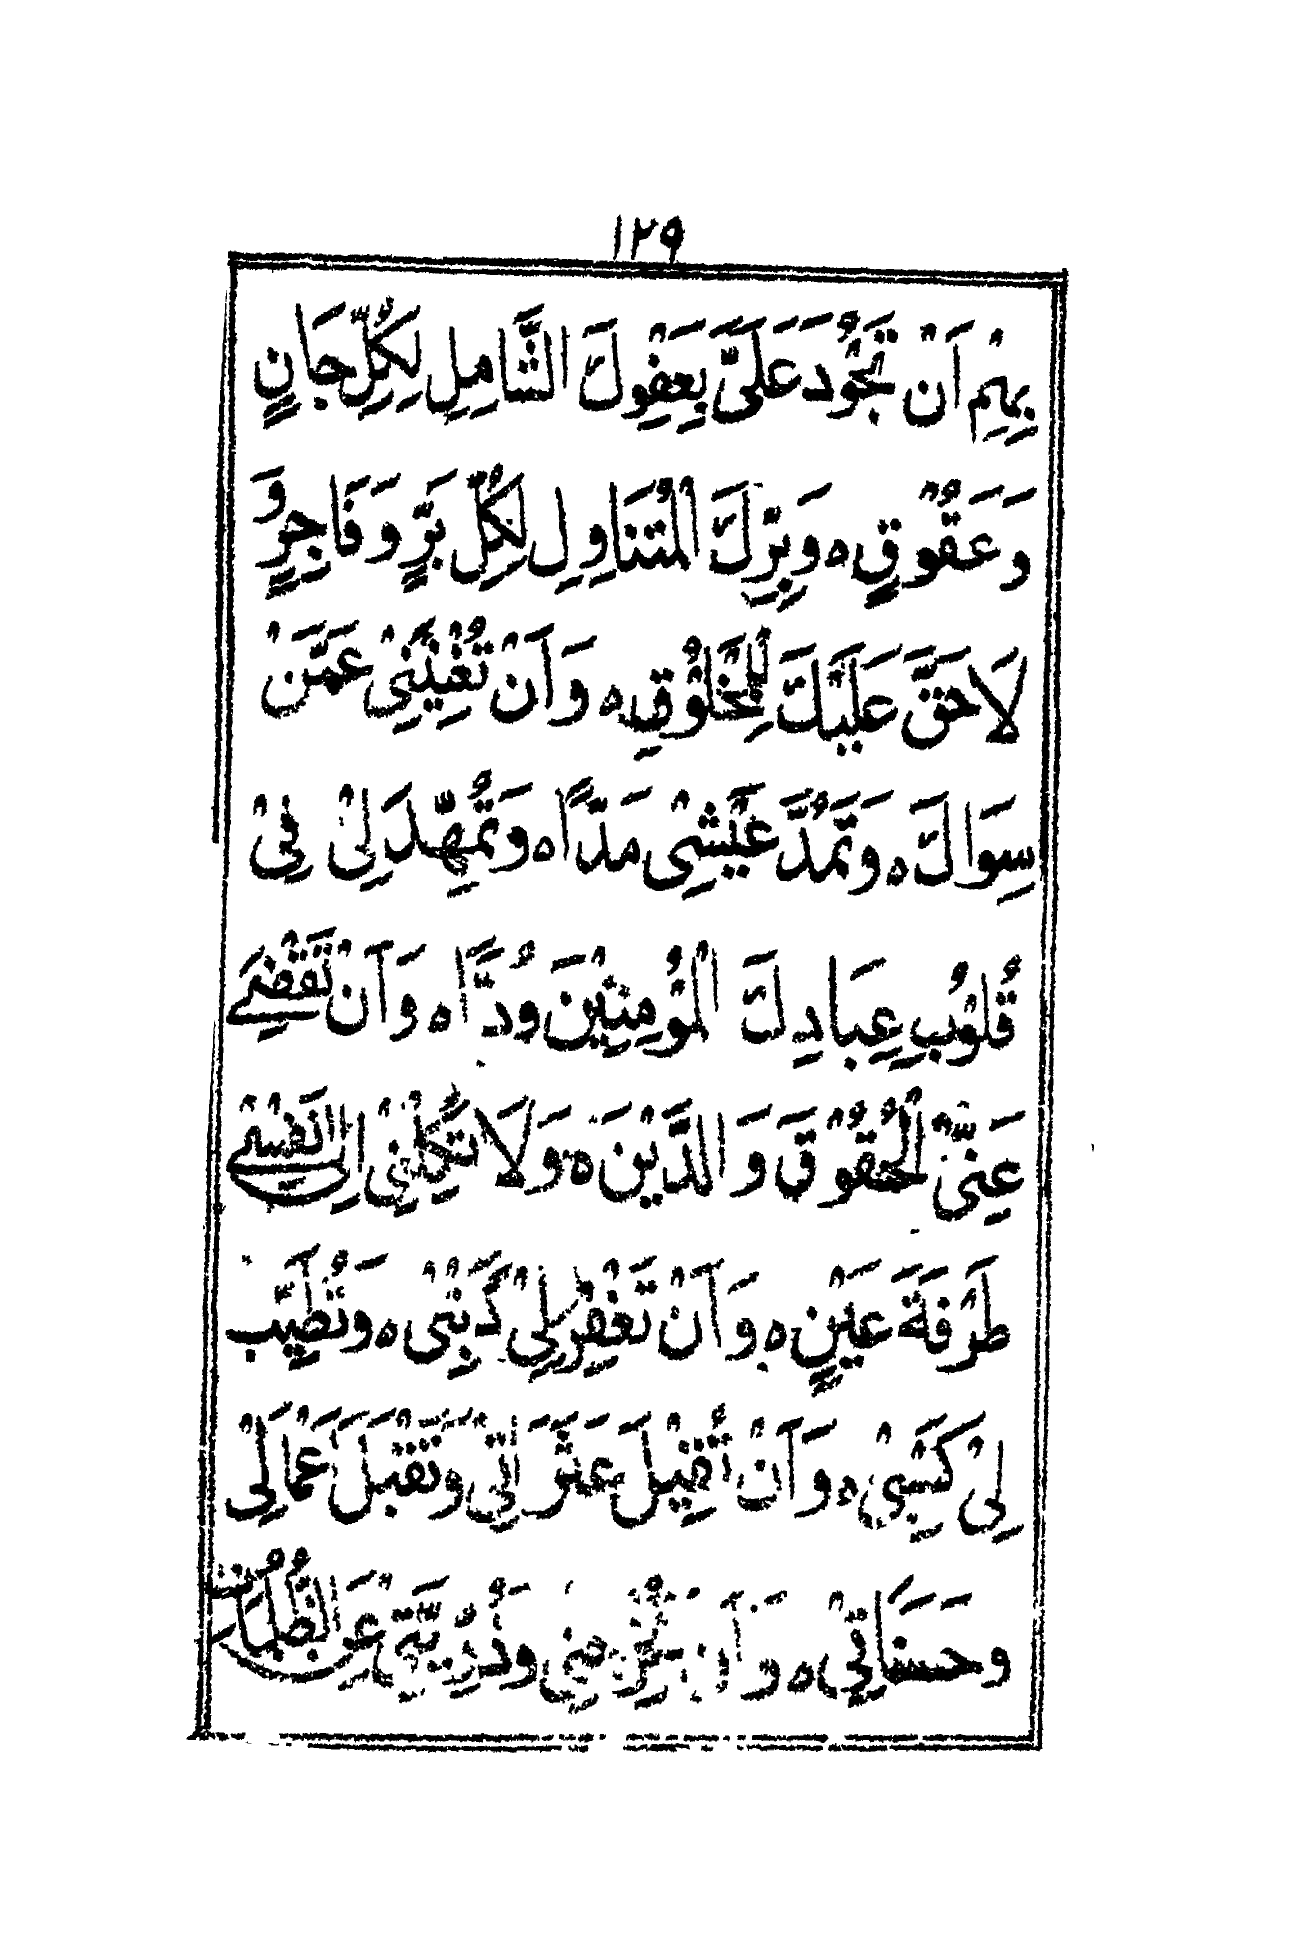 ١٢٩
بِهِمْ اَنْ تَجُوْدَ عَلَیَّ بِعَفْوِكَ الشَّامِلِ لِكُلِّ جَانٍ
وَعَقُوْقٍ ہ وَبِرِّكَ الْمُتَنَاوِلِ لِكُلِّ بَرٍّ وَفَاجِرٍ وَ
لَا حَقَّ عَلَیْكَ لِمَخْلُوْقٍ ہ وَاَنْ تُغْنِیَنِیْ عَمَّنْ
سِوَاكَ ہ وَتَمُدَّ عَیْشِیْ مَدًّا ہ وَتُمَهِّدَ لِیْ فِیْ
قُلُوْبِ عِبَادِكَ الْمُؤْمِنِیْنَ وُدًّا ہ وَاَنْ تَقْضِیَ
عَنِّیْ الْحُقُوْقَ وَالدَّیْنَ ہ وَلَا تَكِلْنِیْ اِلٰی نَفْسِیْ
طَرْفَةَ عَیْنٍ ہ وَاَنْ تَغْفِرَ لِیْ ذَنْبِیْ ہ وَتُطَیِّبَ
لِیْ كَسْبِیْ ہ وَاَنْ تُقِیْلَ عَثَرَاتِیْ وَتَقْبَلَ اَعْمَالِیْ
وَحَسَنَاتِیْ ہ وَاَنْ تُخْرِجَنِیْ وَذُرِّیَّتِیْ عَنِ الظُّلُمَاتِ